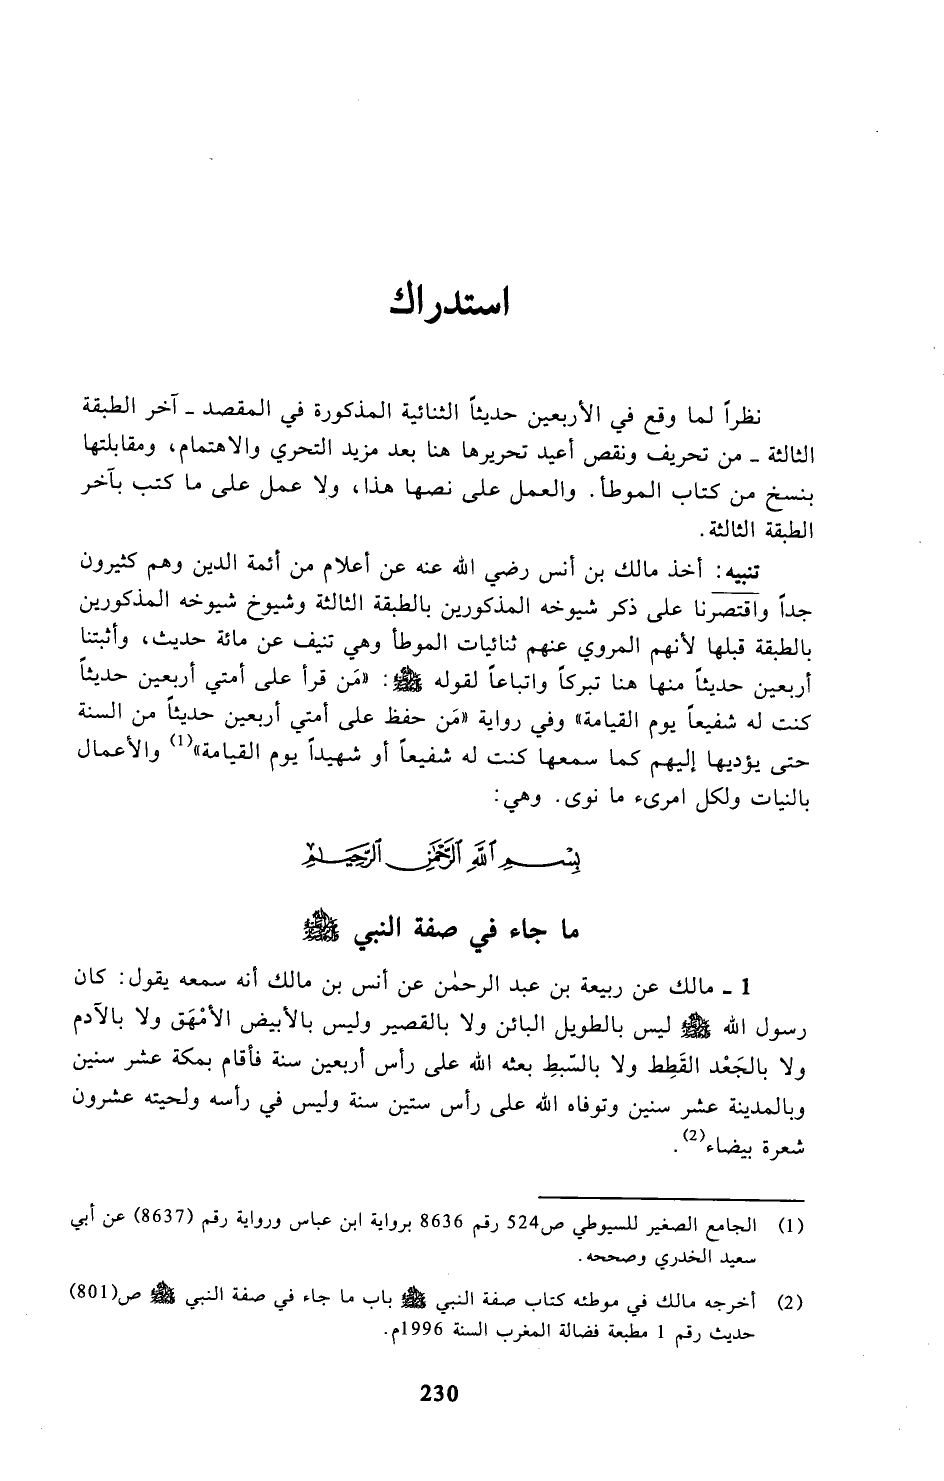 استدراك
نظراً لما وقع في الأربعين حديثاً الثنائية المذكورة في المقصد ـ آخر الطبقة
الثالثة ـ من تحريف ونقص أعيد تحريرها هنا بعد مزيد التحري والاهتمام، ومقابلتها
بنسخ من كتاب الموطأ. والعمل على نصها هذا، ولا عمل على ما كتب بآخر
الطبقة الثالثة.
تنبيه: أخذ مالك بن أنس رضي الله عنه عن أعلام من أئمة الدين وهم كثيرون
جداً واقتصرنا على ذكر شيوخه المذكورين بالطبقة الثالثة وشيوخ شيوخه المذكورين
بالطبقة قبلها لأنهم المروي عنهم ثنائيات الموطأ وهي تنيف عن مائة حديث، وأثبتنا
أربعين حديثاً منها هنا تبركاً واتباعاً لقوله ﷺ: «مَن قرأ على أمتي أربعين حديثاً
كنت له شفيعاً يوم القيامة» وفي رواية «مَن حفظ على أمتي أربعين حديثاً من السنة
حتى يؤديها إليهم كما سمعها كنت له شفيعاً أو شهيداً يوم القيامة»(1) والأعمال
بالنيات ولكل امرىء ما نوى. وهي:
بِسْمِ ٱللَّهِ ٱلرَّحْمَٰنِ ٱلرَّحِيمِ
ما جاء في صفة النبي ﷺ
1 ـ مالك عن ربيعة بن عبد الرحمٰن عن أنس بن مالك أنه سمعه يقول: كان
رسول الله ﷺ ليس بالطويل البائن ولا بالقصير وليس بالأبيض الأمْهَق ولا بالآدم
ولا بالجَعْد القَطِط ولا بالسَّبطِ بعثه الله على رأس أربعين سنة فأقام بمكة عشر سنين
وبالمدينة عشر سنين وتوفاه الله على رأس ستين سنة وليس في رأسه ولحيته عشرون
شعرة بيضاء(2).
(1) الجامع الصغير للسيوطي ص524 رقم 8636 برواية ابن عباس ورواية رقم (8637) عن أبي
سعيد الخدري وصححه.
(2) أخرجه مالك في موطئه كتاب صفة النبي ﷺ باب ما جاء في صفة النبي ﷺ ص(801)
حديث رقم 1 مطبعة فضالة المغرب السنة 1996م.
230